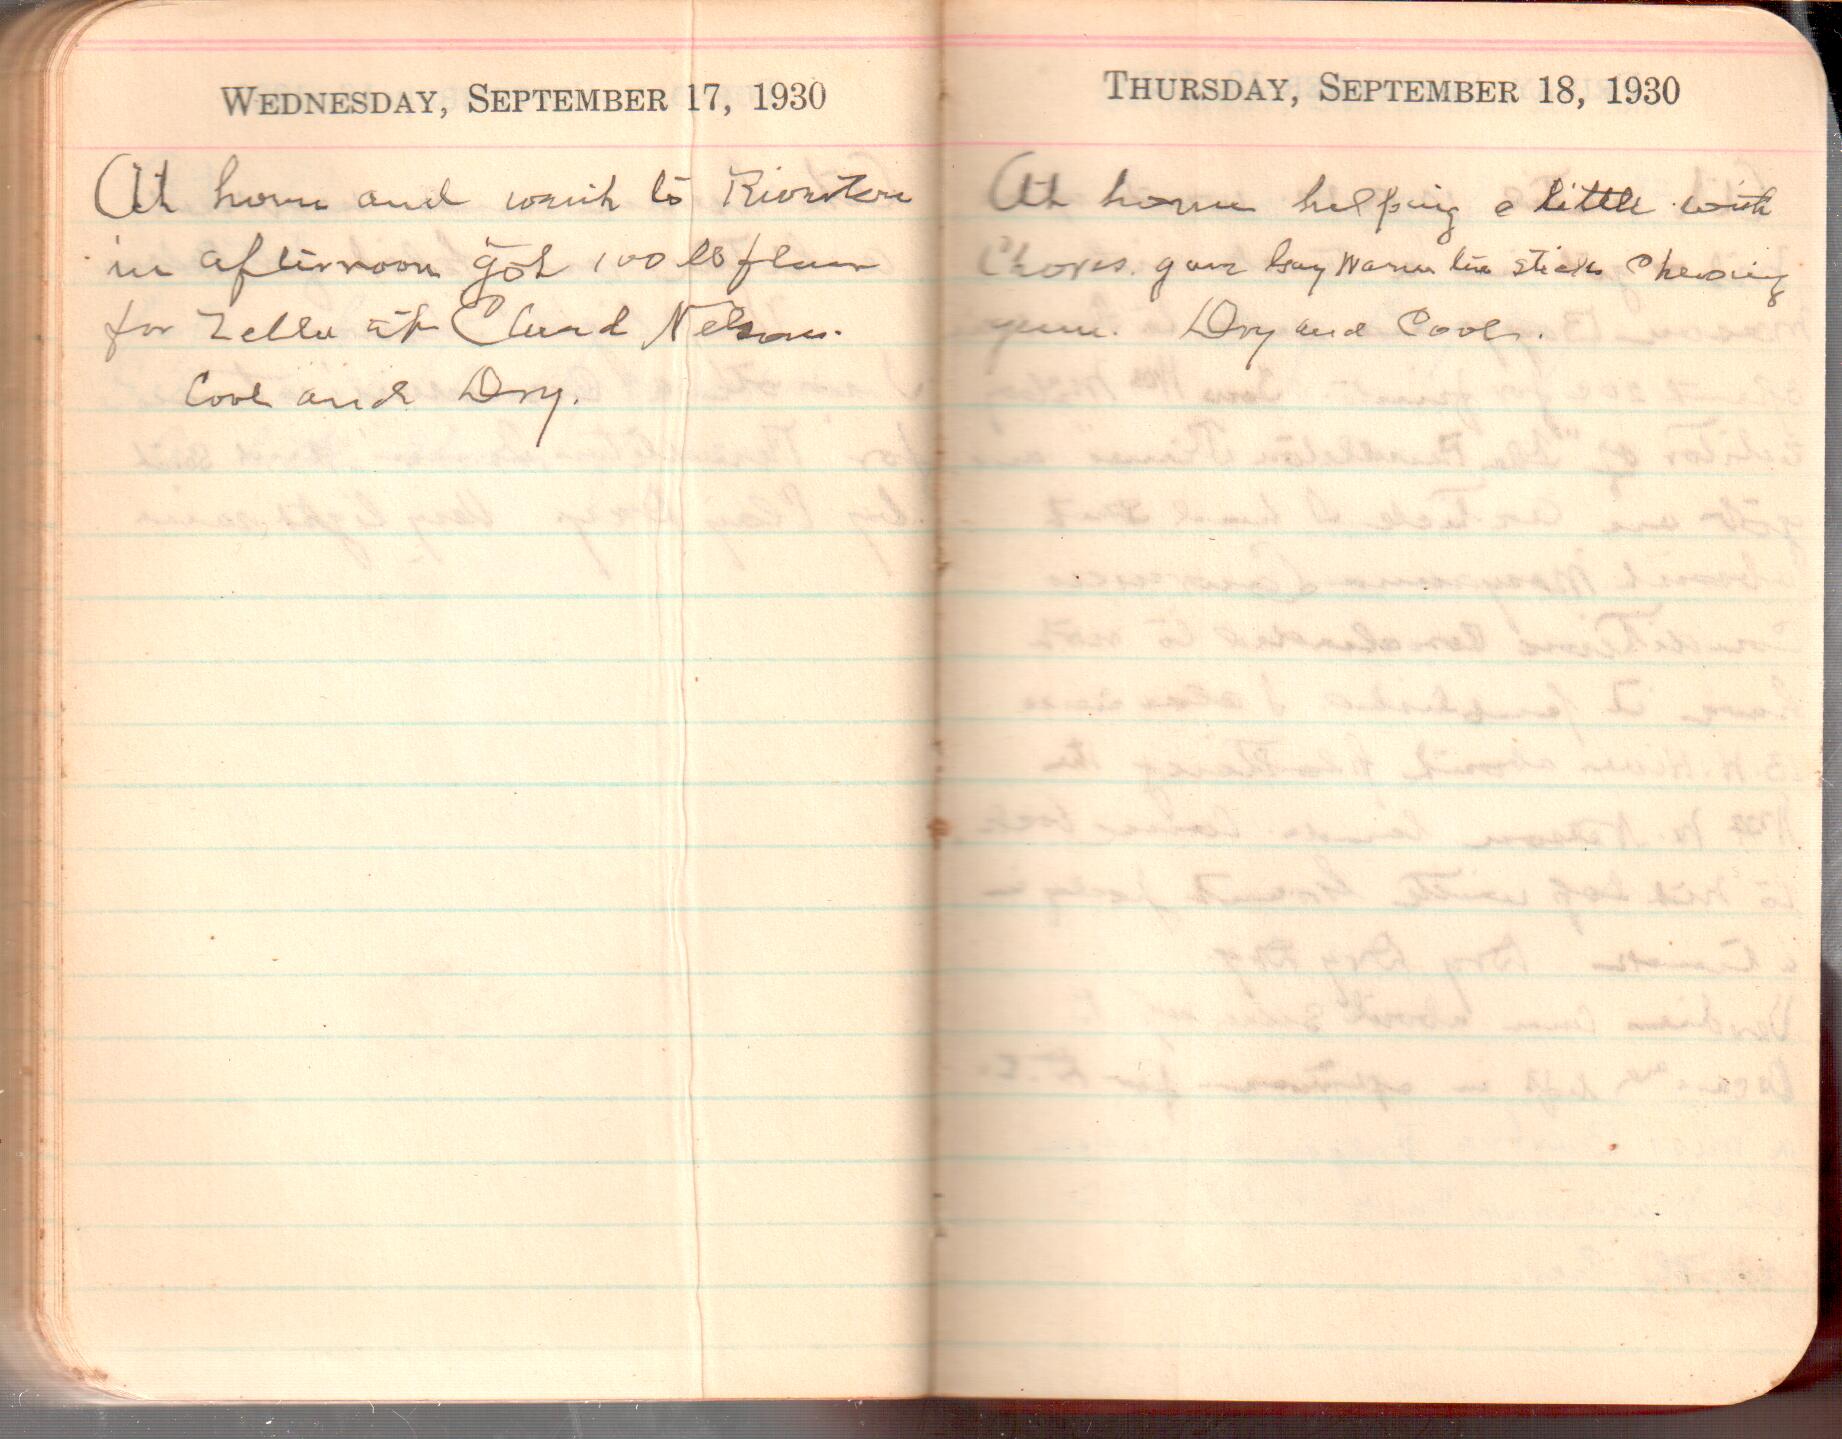 WEDNESDAY, SEPTEMBER 17, 1930
At home and went to Riverton
in afternoon got 100 lb flour
for Zella at Claud Nelsons.
Cool and Dry.
THURSDAY, SEPTEMBER 18, 1930
At home helping a little with
Chores. gave Guy Warner two sticks Chewing
gum. Dry and Cool.